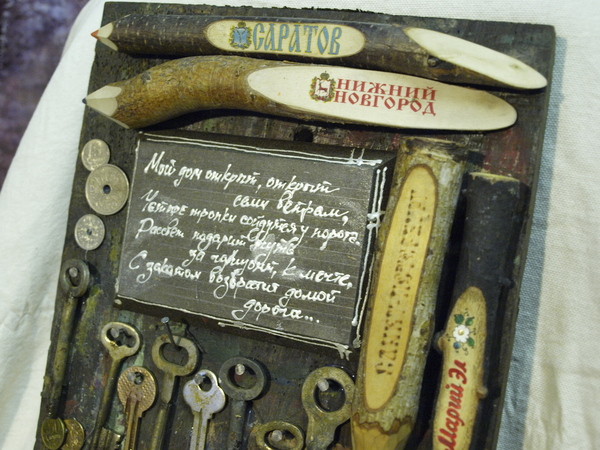 САРАТОВ
НИЖНИЙ
НОВГОРОД
Мой дом открыт, открыт
семи ветрам,
Четыре тропки сойдутся у порога.
Рассвет подарит
за к мечте,
С закатом возвратит домой
дорога...
Марий Эл